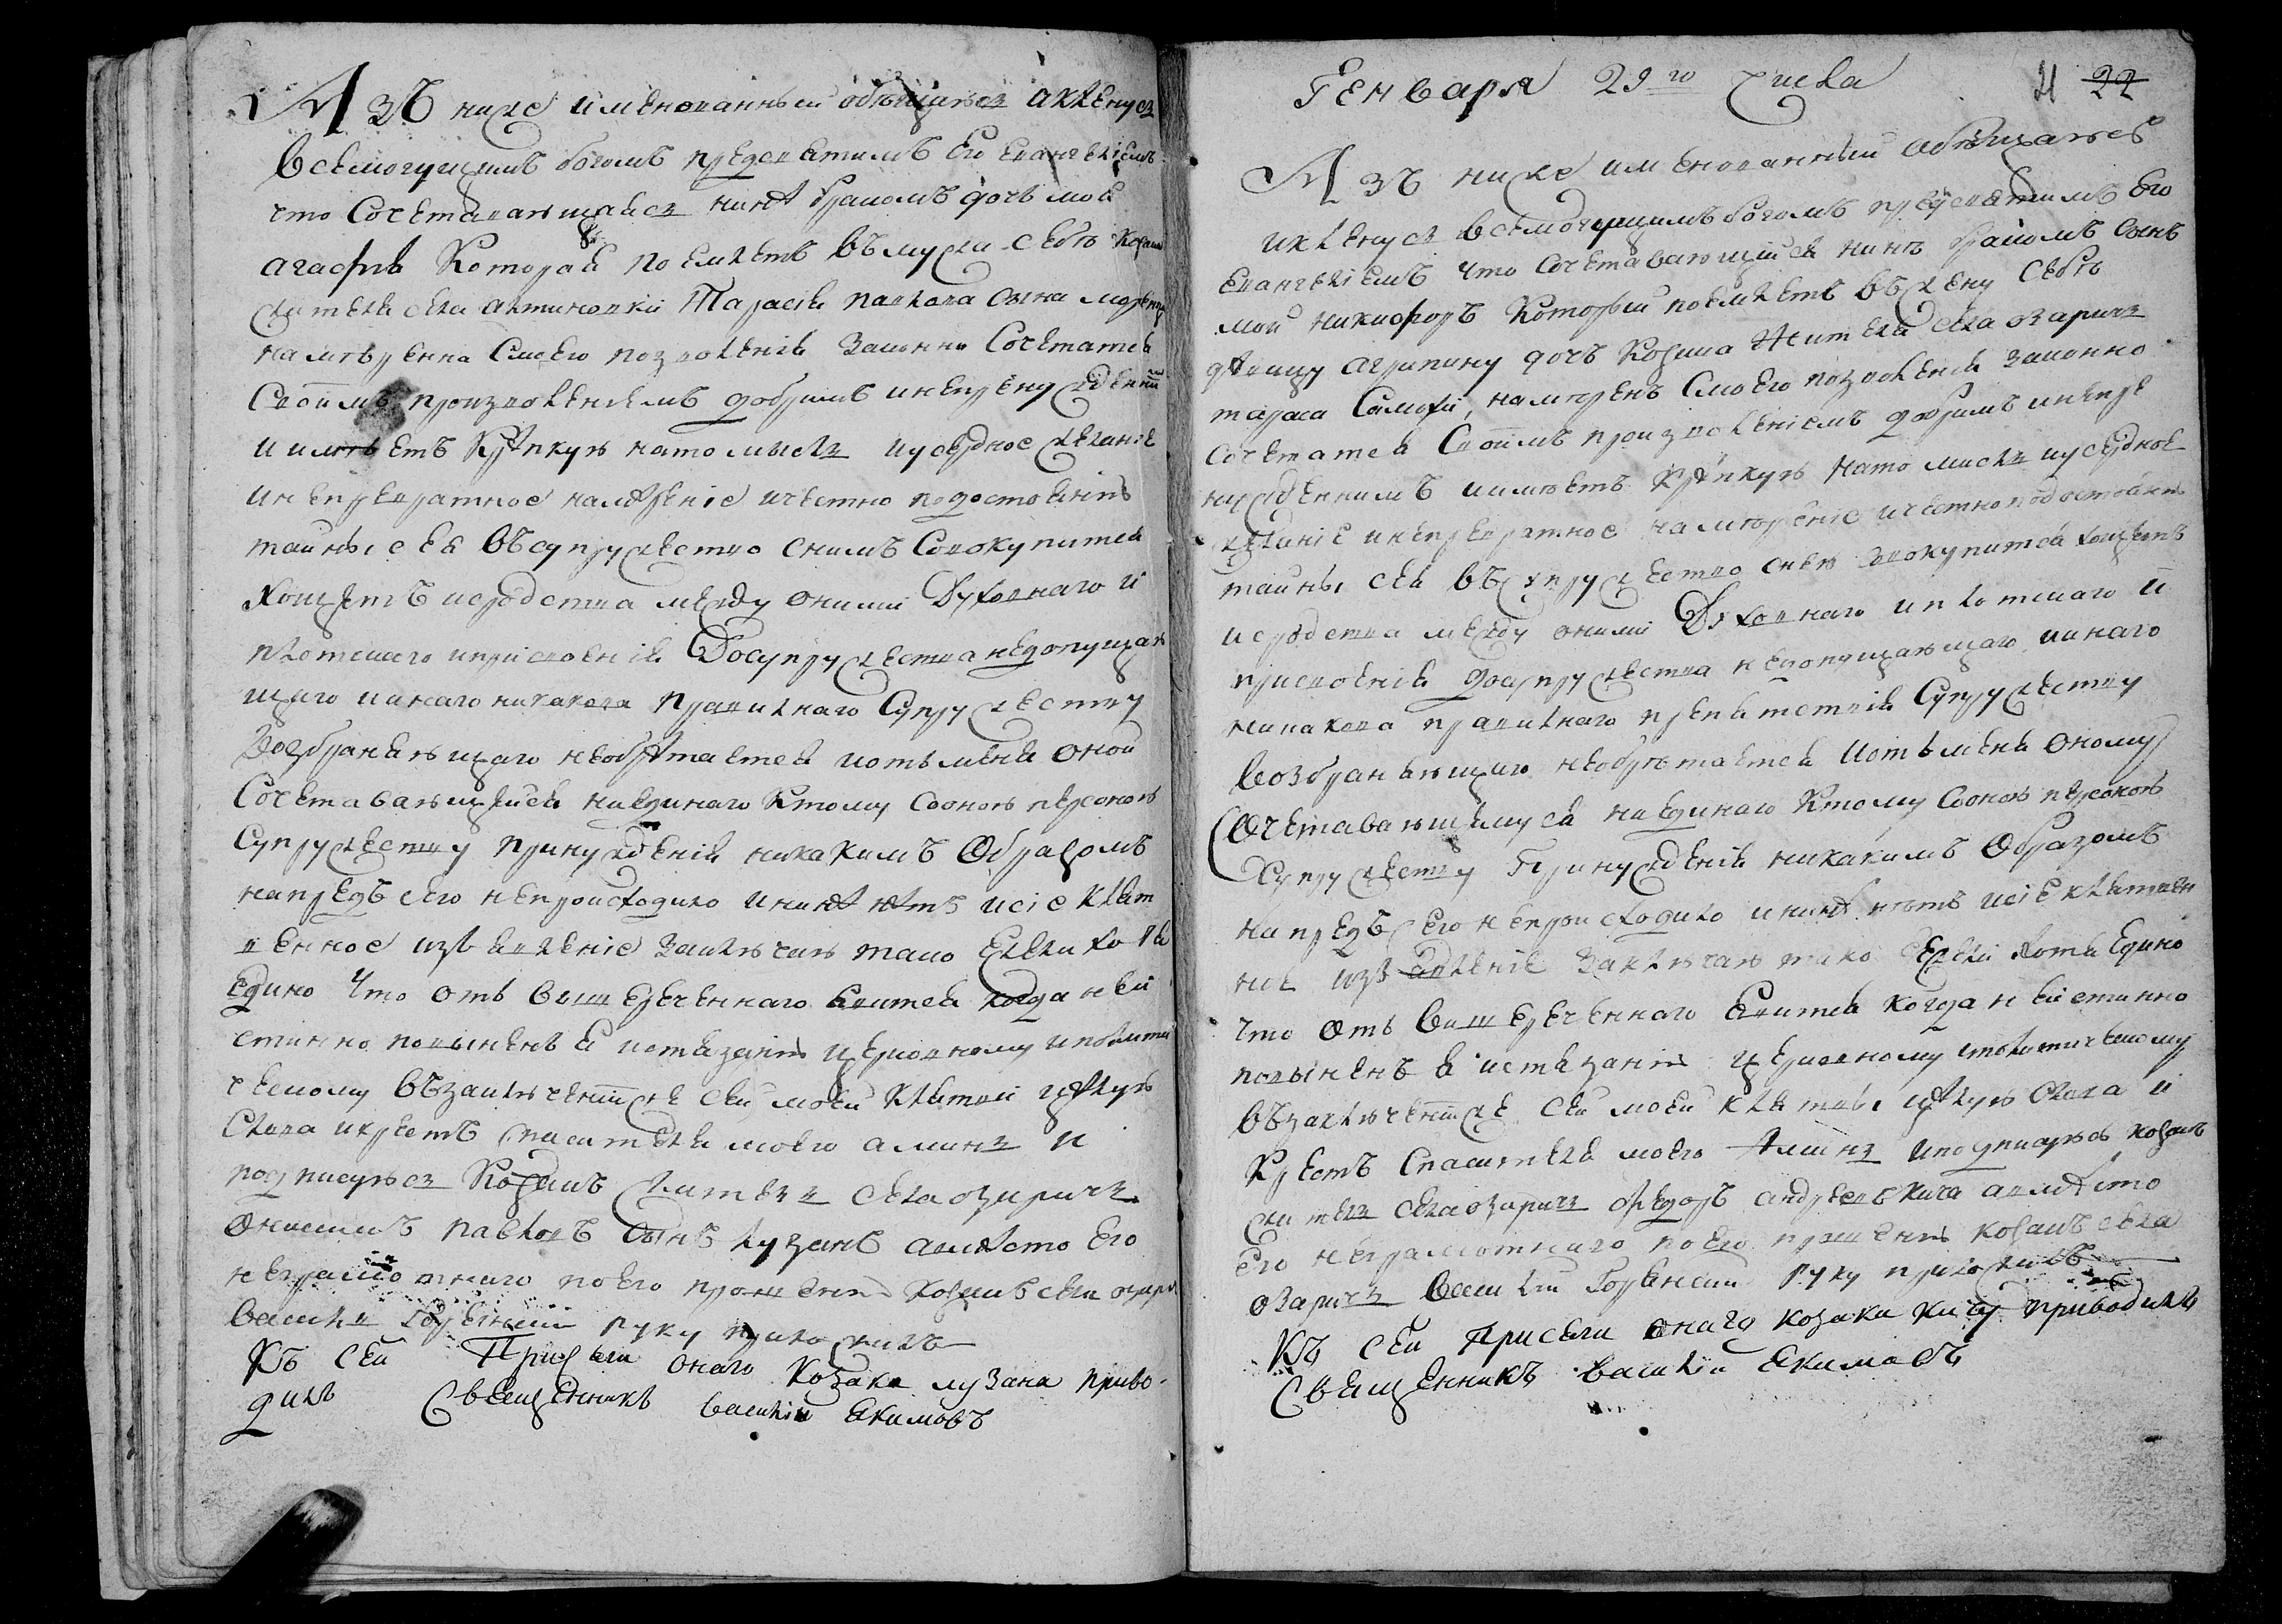 Азъ ниже именованный обѣщаюсь и кленуся
Всемогущимъ богомъ предсвятимъ Его Евангеліемъ
что Сочетаваящаяся нинѣ бракомъ дочь моя
агафія Которая поемлетъ въ мужа себѣ козака
жителя села Тарасія павлова сина
намѣренна Смоего позволенія законно Сочетатся
Своимъ произволеніемъ добримъ и непренужденнимъ
и имѣетъ крѣпкую на то мысль и усердное желаніе
и непревратное намѣреніе и честно по достоянію
тайны сея въ супружество снимъ Совокупится
хощетъ и сродства между оними Духовнаго и
плотскаго и присвоенія До супружества недопущаю
щаго и инаго никакова правилнаго Супружеству
Возбраняющаго необрѣтается и отъ мене оной
Сочетавающейся ни единаго к тому Сооною персоною
Супружеству принужденія никакимъ Образомъ
напредъ сего непроисходило и нинѣ нѣтъ и сіе клят
венное изъявленіе заключаю тако Ежели хотя
Едино что отъ вишереченнаго явится когда неи
стинно повыненъ я истязанію церковному и полити
ческому въ заключеніи же сей моей клятви цѣлую
Слова и крестъ спасителя моего аминь и
подписуюся Козакъ житель села озаричъ
Онисимъ павловъ сынъ лузанъ а вмѣсто его
неграмотнаго по его прошенію козакъ села озаричъ
василій руку приложилъ
Къ сей Присяги онаго козака лузана приво-
дилъ Священникъ василій Екимовъ
Генваря 29го числа
21 22
Азъ ниже именованный обѣщаюсь
и кленуся всемогущимъ богомъ предсвятимъ Его
Евангеліемъ что Сочетавающийся нинѣ бракомъ сынъ
мой никифоръ Который поемлетъ въ жену себѣ
дѣвицу агрипину дочь козака Жителя села озаричъ
тараса намѣренъ Смоего позволенія законно
сочетатся Своимъ произволеніемъ добримъ и непре
нужденнимъ и имѣетъ крѣпкую на то мисль и усердное
желаніе и непревратное намѣреніе и честно по достоянію
тайны сея въ супружество снею совокупится хощетъ
и сродства между оними Духовнаго и плотскаго и
присвоенія до супружества недопущающаго и инаго
никакова правилнаго препятствія Супружеству
возбраняющаго необрѣтается и отъ мене оному
Сочетавающемуся ни единаго к тому Сооною персоною
Супружеству Принужденія никакимъ Образомъ
напредъ сего непроисходило и нинѣ нѣтъ и сіе клятвен
ное изъявленіе заключаю тако Ежели хотя Едино
что отъ вишереченнаго явится когда неистинно
повыненъ я истязанію церковному и политическому
въ заключеніи же сей моей клятвы цѣлую Слова и
Крестъ Спасителя моего Аминь и подписуюсь козакъ
житель села озаричъ федоръ андреевъ а вмѣсто
его неграмотнаго по его прошенію козакъ села
озаричъ василій руку приложилъ
Къ сей присяги онаго козака приводилъ
Священникъ василій Екимовъ